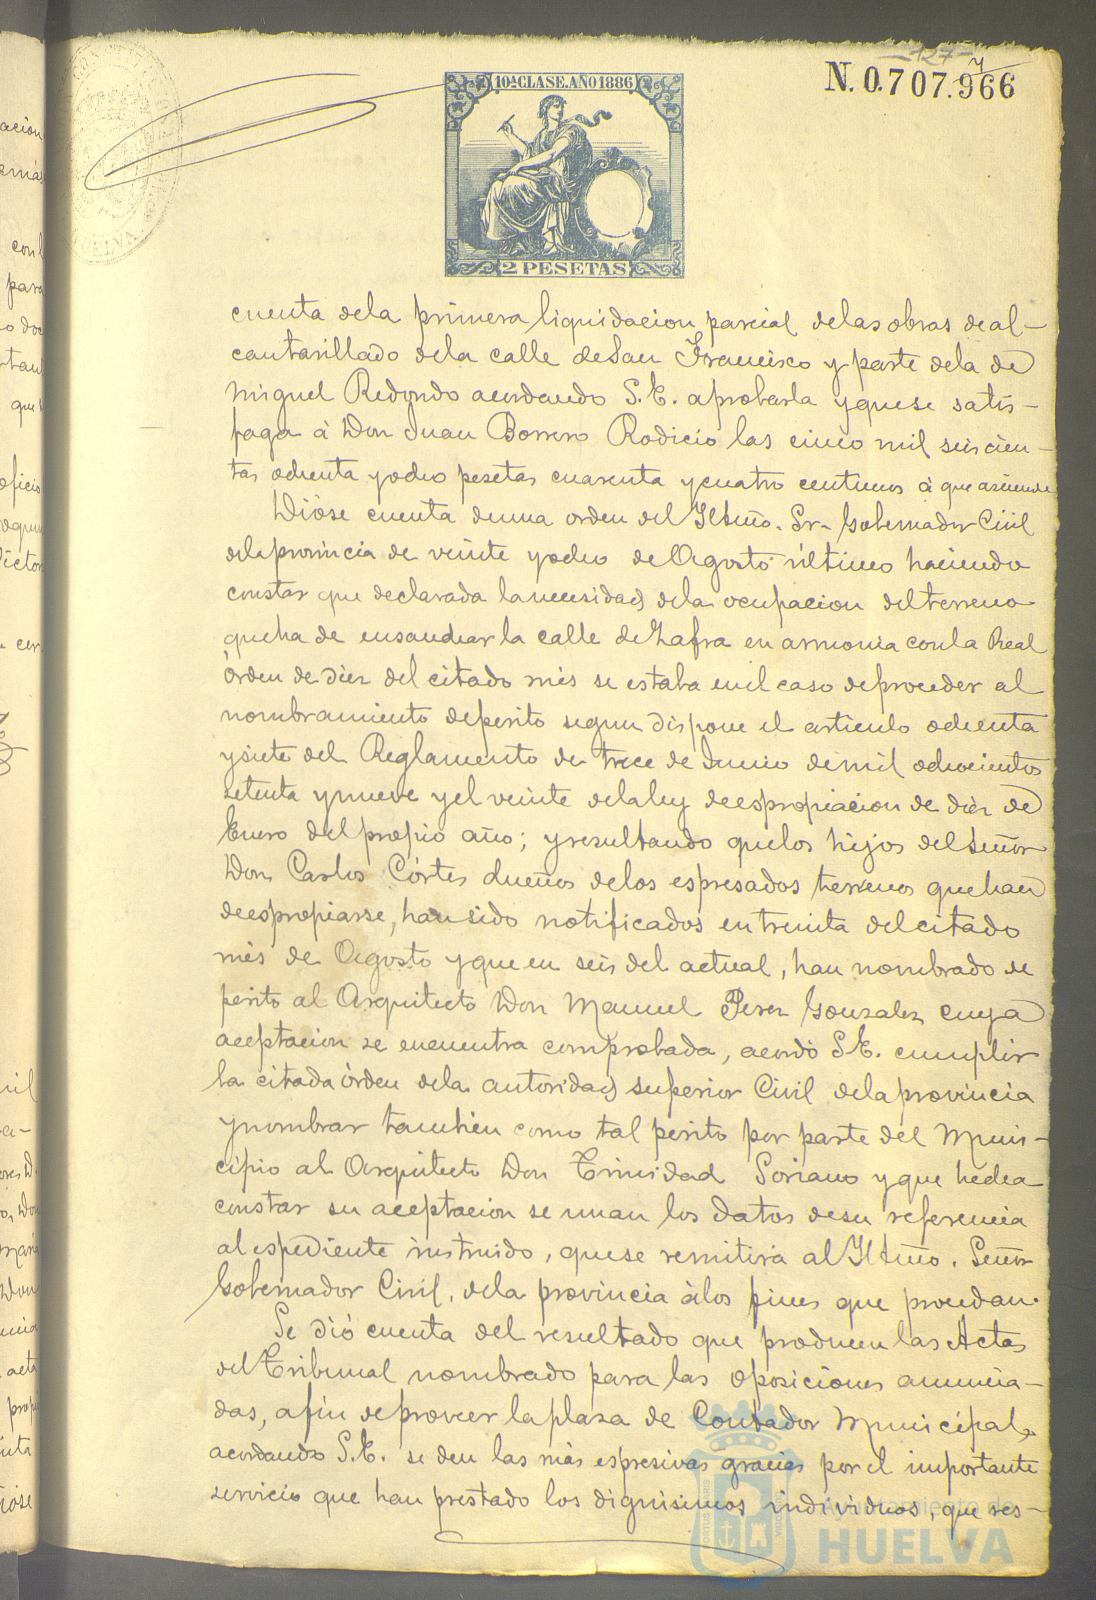 127
N. 0.707.966
10ª CLASE. AÑO 1886
2 PESETAS
HUELVA
cuenta dela primera liquidacion parcial delas obras de al-
cantarillado dela calle de San Francisco y parte dela de
Miguel Redondo acordando S.E. aprobarla y que se satis-
faga á Don Juan Borrero Rodicio las cinco mil seiscien-
tas ochenta y ocho pesetas cuarenta y cuatro centimos á que asciende
Dióse cuenta de una orden del Iltmo. Sr. Gobernador Civil
dela provincia de veinte y ocho de Agosto último haciendo
constar que declarada la necesidad dela ocupacion del terreno
que ha de ensanchar la calle de Zafra en armonia con la Real
órden de diez del citado mes se estaba en el caso de proceder al
nombramiento de perito segun dispone el articulo ochenta
y siete del Reglamento de trece de Junio de mil ochocientos
setenta y nueve y el veinte dela ley de espropiacion de diez de
Enero del propio año; y resultando que los hijos del Señor
Don Carlos Córtes dueños delos espresados terrenos que han
de espropiarse, han sido notificados en treinta del citado
mes de Agosto y que en seis del actual, han nombrado de
perito al Arquitecto Don Manuel Perez Gonzalez cuya
aceptacion se encuentra comprobada, acordó S.E. cumplir
la citada órden dela autoridad superior Civil dela provincia
y nombrar tambien como tal perito por parte del Muni-
cipio al Arquitecto Don Trinidad Soriano y que hecha
constar su aceptacion se unan los datos de su referencia
al espediente instruido, que se remitirá al Iltmo. Señor
Gobernador Civil, dela provincia á los fines que procedan.
Se dió cuenta del resultado que producen las Actas
del Tribunal nombrado para las oposiciones anuncia-
das, afin de proveer la plaza de Contador Municipal,
acordando S.E. se den las más espresivas gracias por el importante
servicio que han prestado los dignisimos individuos, que res-
Ayuntamiento de
HUELVA